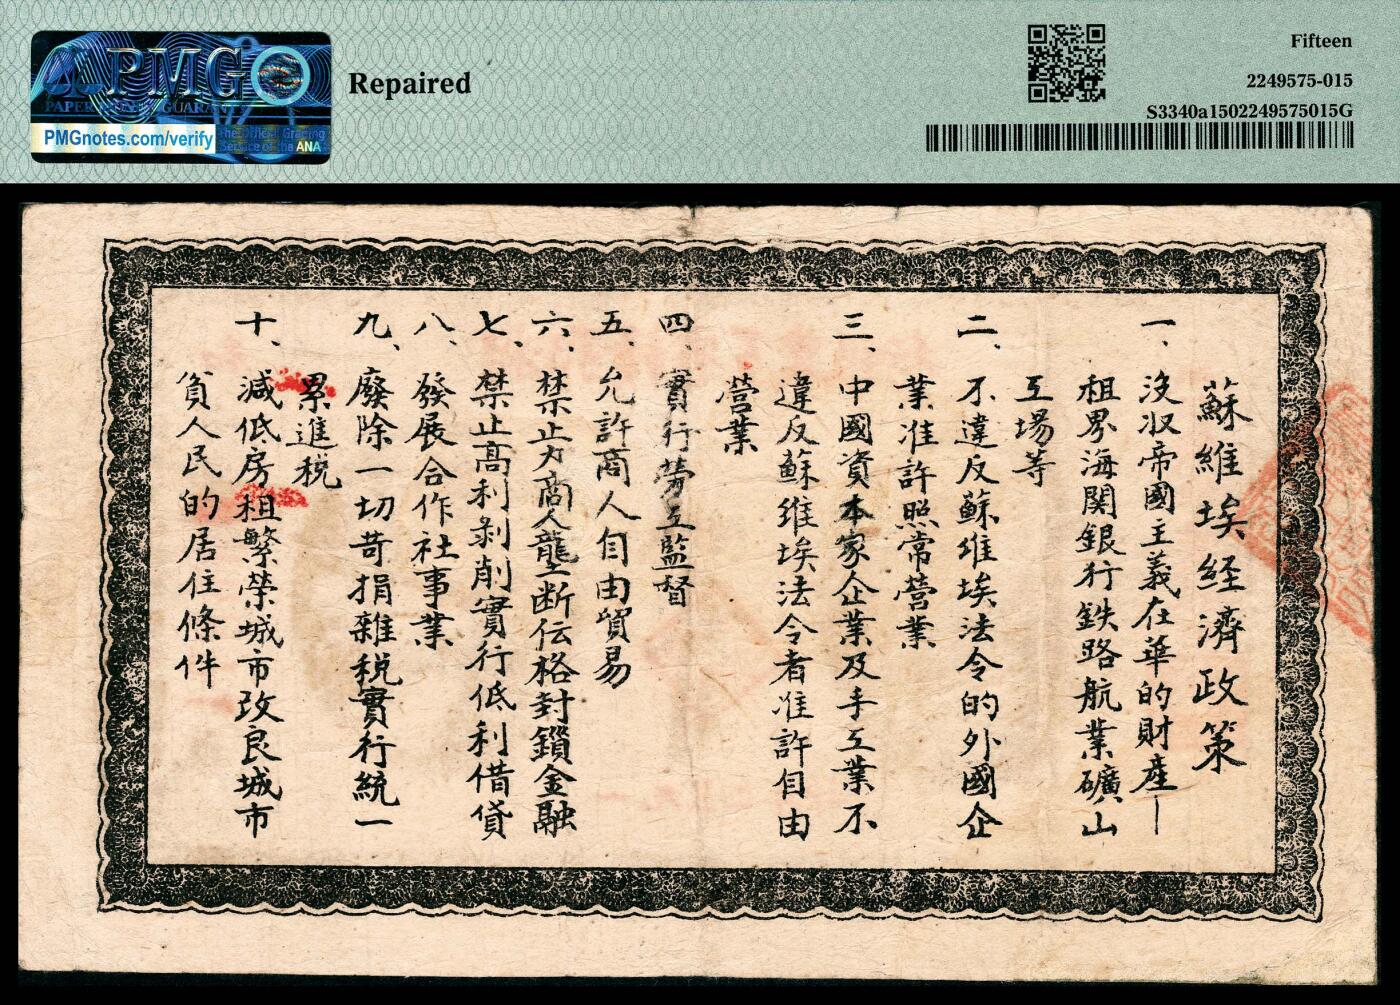 PMG
PAPER MONEY GUARANTY
PMGnotes.com/verify
The Official Grading
Service of the ANA
Repaired
Fifteen
2249575-015
S3340a1502249575015G
蘇維埃經濟政策
一、沒収帝國主義在華的財產—
租界海関銀行鉄路航業礦山
工場等
二、不違反蘇維埃法令的外國企
業准許照常營業
三、中國資本家企業及手工業不
違反蘇維埃法令者准許自由
營業
四、實行勞工監督
五、允許商人自由貿易
六、禁止大商人壟断価格封鎖金融
七、禁止高利剥削實行低利借貸
八、發展合作社事業
九、廢除一切苛捐雜税實行統一
累進税
十、減低房租繁榮城市改良城市
貧人民的居住條件